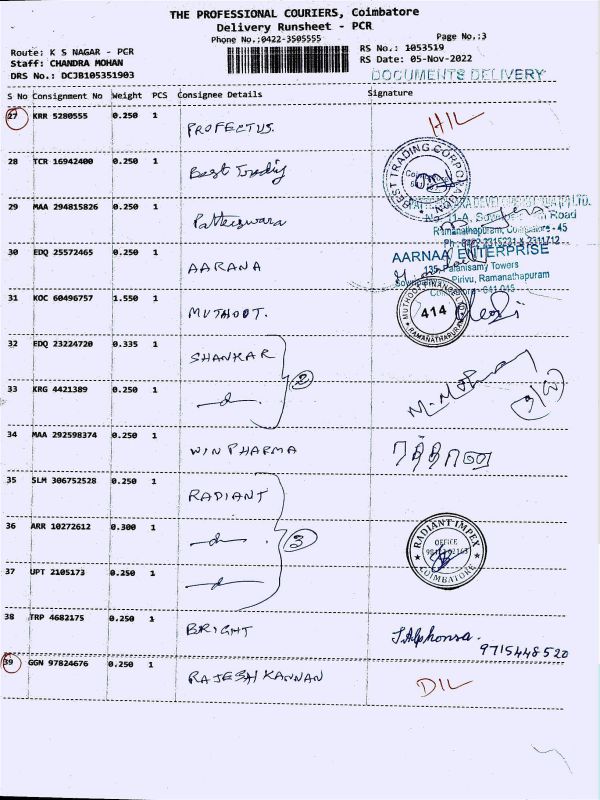 THE PROFESSIONAL COURIERS, Coimbatore
Delivery Runsheet - PCR
Phone No.:0422-3505555
Page No.:3
Route: K S NAGAR - PCR
RS No.: 1053519
Staff: CHANDRA MOHAN
RS Date: 05-Nov-2022
DRS No.: DC3B105351903
DOCUMENTS DELIVERY
S No Consignment No Weight PCS Consignee Details Signature
27 KRR 5280555 0.250 1 PROFECTUS. HIL
28 TCR 16942400 0.250 1 Best Trading
BEST TRADING CORPORATION
29 MAA 294815826 0.250 1 Patteeswara
No. 11-A, Road
Ramanathapuram, Coimbatore - 45
Ph : 0422-2315231 & 2311712
30 EDQ 25572465 0.250 1 AARANA
AARNAA ENTERPRISE
135, Palanisamy Towers
Pirivu, Ramanathapuram
Coimbatore - 641 045
31 KOC 60496757 1.550 1 MUTHOOT.
MUTHOOT FINANCE LTD
414
RAMANATHAPURAM
32 EDQ 23224720 0.335 1 SHANKAR
2
33 KRG 4421389 0.250 1 —d—
34 MAA 292598374 0.250 1 WIN PHARMA
35 SLM 306752528 0.250 1 RADIANT
36 ARR 10272612 0.300 1 —d— . 3
RADIANT IMPEX
OFFICE
COIMBATORE
37 UPT 2105173 0.250 1 —d—
38 TRP 4682175 0.250 1 BRIGHT J.Alphonsa.
9715448520
39 GGN 97824676 0.250 1 RAJESH KANNAN DIL